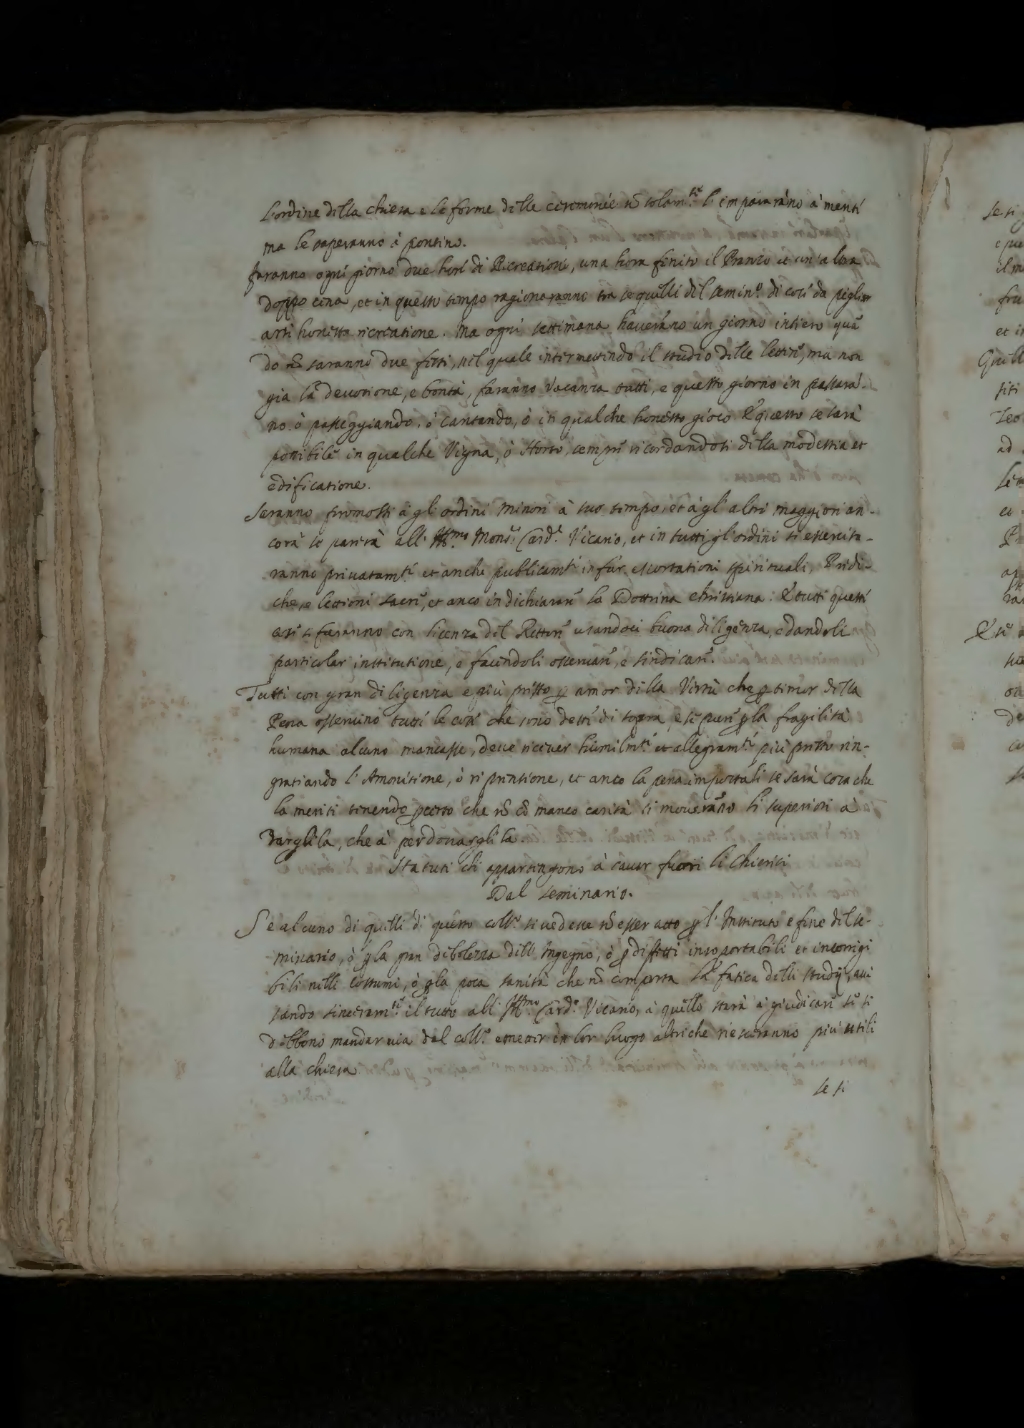 L'ordine della chiesa e le forme delle ceremonie nõ solam.te l'impararãno a' menti
ma le saperanno à pontino.
faranno ogni giorno due hore di Recreatione, una hora finito il Pranzo et un'altra
doppo cena, et in questo tempo ragionaranno tra se quelli del semin.o di cose da pigliar
honesta ricreatione. Ma ogni settimana haverãno un giorno intiero quã
do nõ saranno due feste, nel quale intermettendo il studio delle lettere, ma non
gia la devotione, e bontà, faranno vacanza tutti, e questo giorno in passarã-
no, ò passeggiando, ò cantando, ò in qualche honesto gioco. E questo se sarà
possibile in qualche Vigna, ò Horto, sempre ricordandosi della modestia et
edificatione.
Saranno promossi à gl'ordini minori à suo tempo, et à gl'altri maggiori an-
cora se parerà all' Ill.mo Mons.r Card.l Vicario, et in tutti gl'ordini si essercita-
ranno privatamte et anche publicamte in far essortationi spirituali, Predi-
che, e lettioni sacre, et anco in dichiarare la Dottrina christiana: E tutti questi
faranno con licenza del Rettore usandoci buona diligenza, e dandoli
particolar institutione, e facendoli osservare, e sindicare.
Tutti con gran diligenza e più presto p amor della Virtù che p timor della
Pena osservino tutte le cose che sono dette di sopra, e se pure p la fragilità
humana alcuno mancasse, deve ricever humilmte et allegramte più presto rin-
gratiando l'Amonitione, ò riprensione, et anco la pena impostali se sarà cosa che
la meriti tenendo p certo che nõ cõ manco carità si moverãno li superiori a
dargliela, che a' perdonargliela.
Statuti che appartengono à cavar fuori li Chierici
Dal seminario.
S'è alcuno di quelli di questo coll.o si vedesse nõ esser atto p l'Instituto e fine del se-
minario, ò p la gran debolezza dell'Ingegno, ò p difetti insoportabili et incorrigi
bili nelli costumi, ò p la poca sanità che nõ comporta la fatica delli studij, avi
sando sinceram.te il tutto all' Ill.mo Card.l Vicario, à quello starà a' giudicare se si
debbono mandar via dal coll.o e metter in lor luogo altri che riesceranno più utili
alla chiesa.
Se si